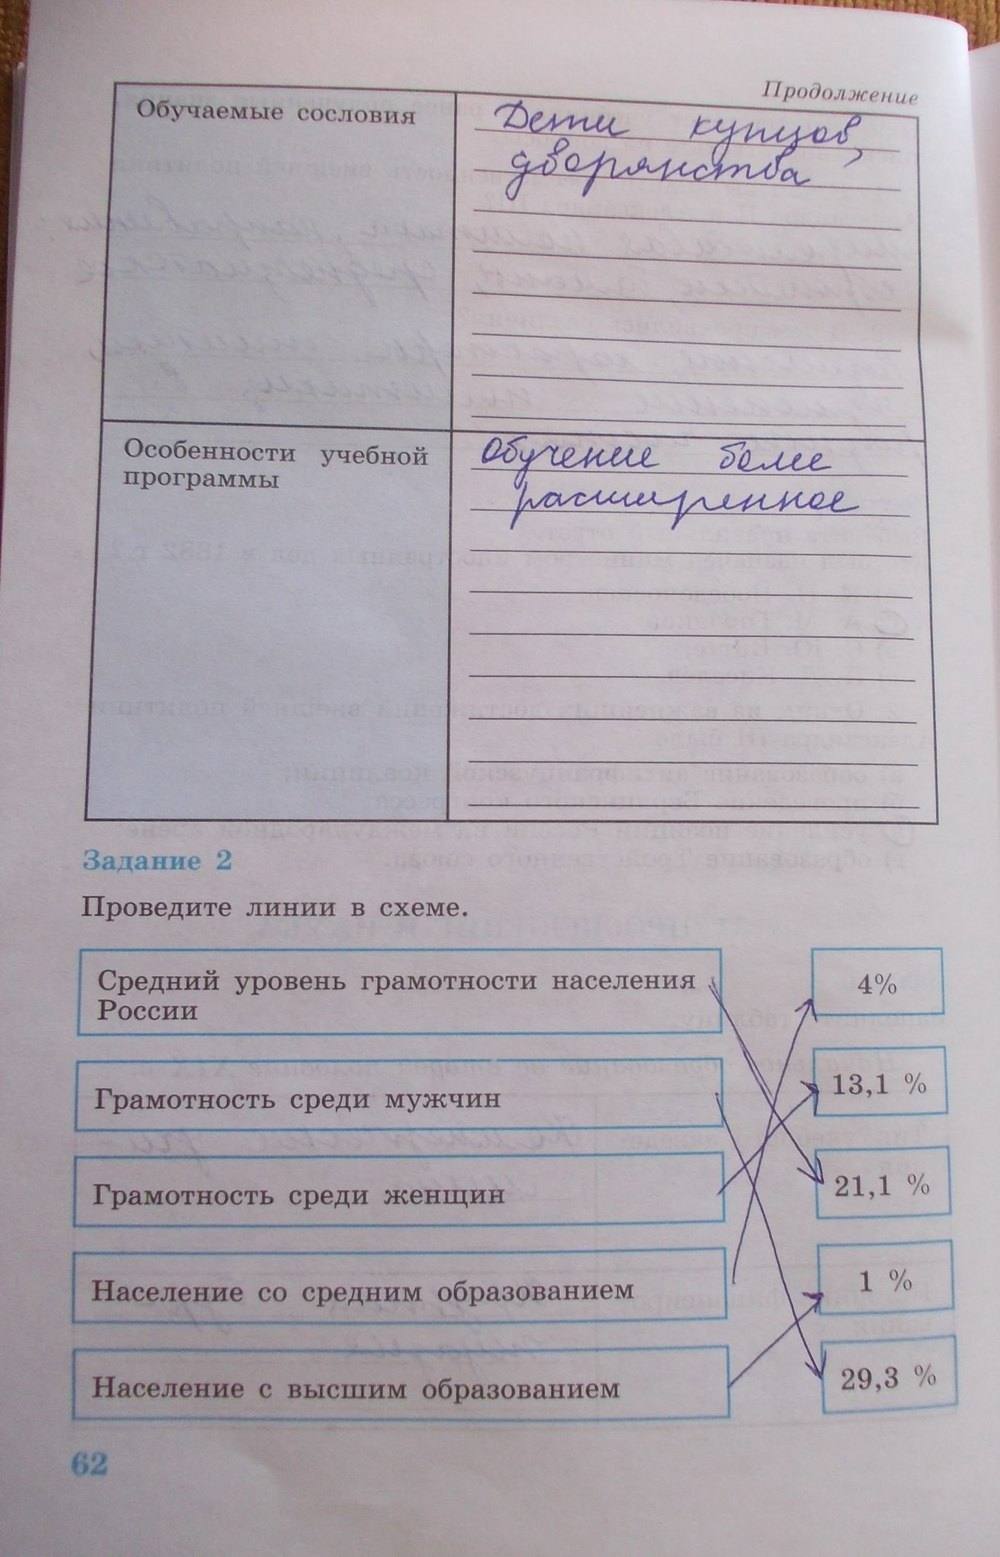 Продолжение
Обучаемые сословия
Дети купцов,
дворянства
Особенности учебной
программы
Обучение более
расширенное
Задание 2
Проведите линии в схеме.
Средний уровень грамотности населения
России
4%
Грамотность среди мужчин
13,1 %
Грамотность среди женщин
21,1 %
Население со средним образованием
1 %
Население с высшим образованием
29,3 %
62